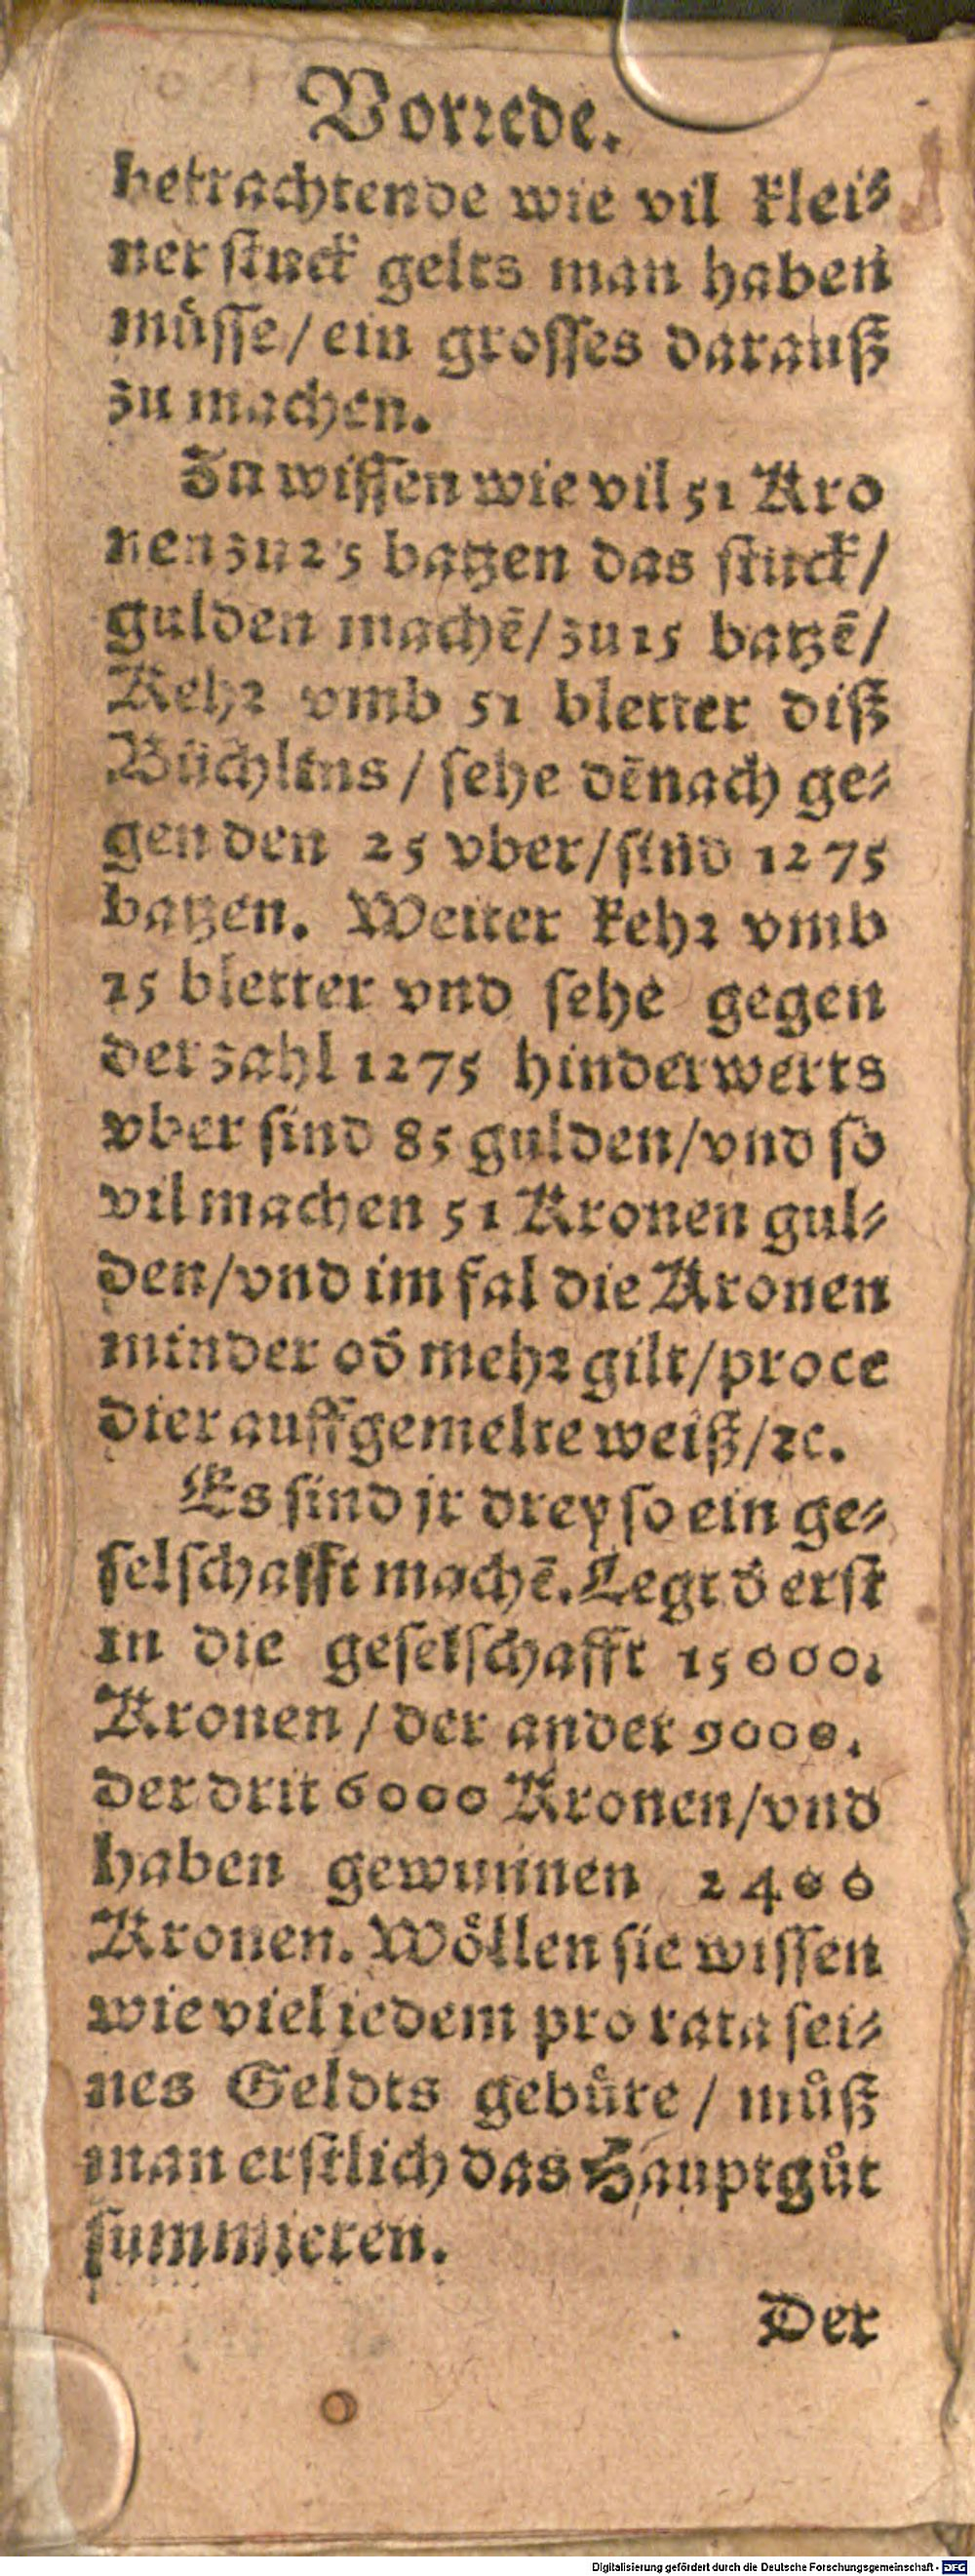 Vorrede.
betrachtende wie vil klei⸗
ner stuck gelts man haben
müsse/ein grosses darauß
zu machen.
Zu wissen wie vil 51 Kro
nen zu 25 batzen das stuck/
gulden machē/zu 15 batzē/
Kehr vmb 51 bletter diß
Büchlins/sehe dēnach ge⸗
gen den 25 vber/sind 1275
batzen. Weiter kehr vmb
15 bletter vnd sehe gegen
der zahl 1275 hinderwerts
vber sind 85 gulden/vnd so
vil machen 51 Kronen gul⸗
den/vnd im fal die Kronen
minder od̄ mehr gilt/proce
dier auff gemelte weiß/ꝛc.
Es sind jr drey so ein ge⸗
selschafft machē. Legt d̄ erst
in die geselschafft 15000.
Kronen/der ander 9000.
der drit 6000 Kronen/vnd
haben gewunnen 2400
Kronen. Wöllen sie wissen
wie viel iedem pro rata sei⸗
nes Geldts gebüre/můß
man erstlich das Hauptgůt
summieren.
Der
Digitalisierung gefördert durch die Deutsche Forschungsgemeinschaft - DFG